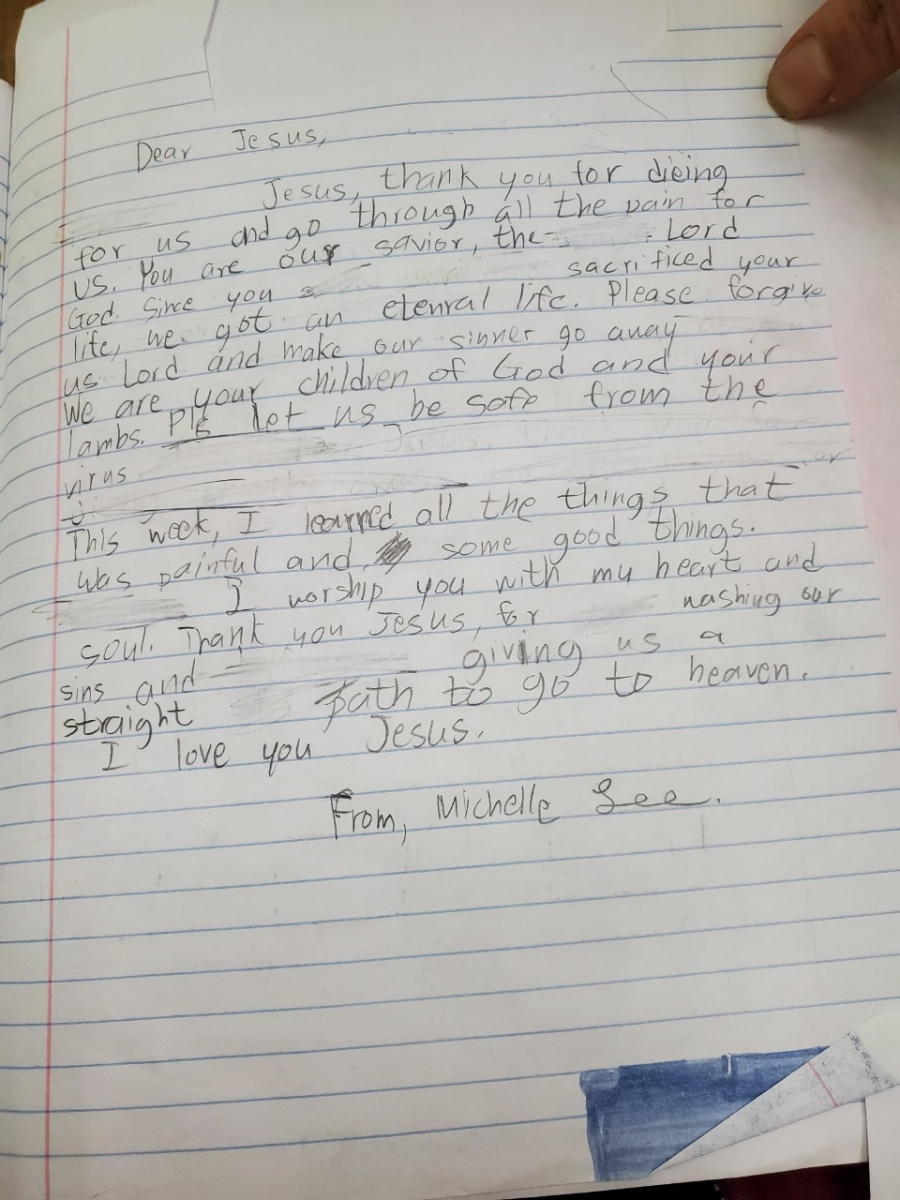 Dear Jesus,
Jesus, thank you for dieing
for us and go through all the pain for
us. You are our savior, the Lord
God. Since you sacrificed your
life, we got an etenral life. Please forgive
us Lord and make our sinner go away
We are your children of God and your
lambs. Pls let us be safe from the
virus.
This week, I learned all the things that
was painful and some good things.
I worship you with my heart and
soul. Thank you Jesus, for washing our
sins and giving us a
straight path to go to heaven.
I love you Jesus.
From, Michelle Lee.